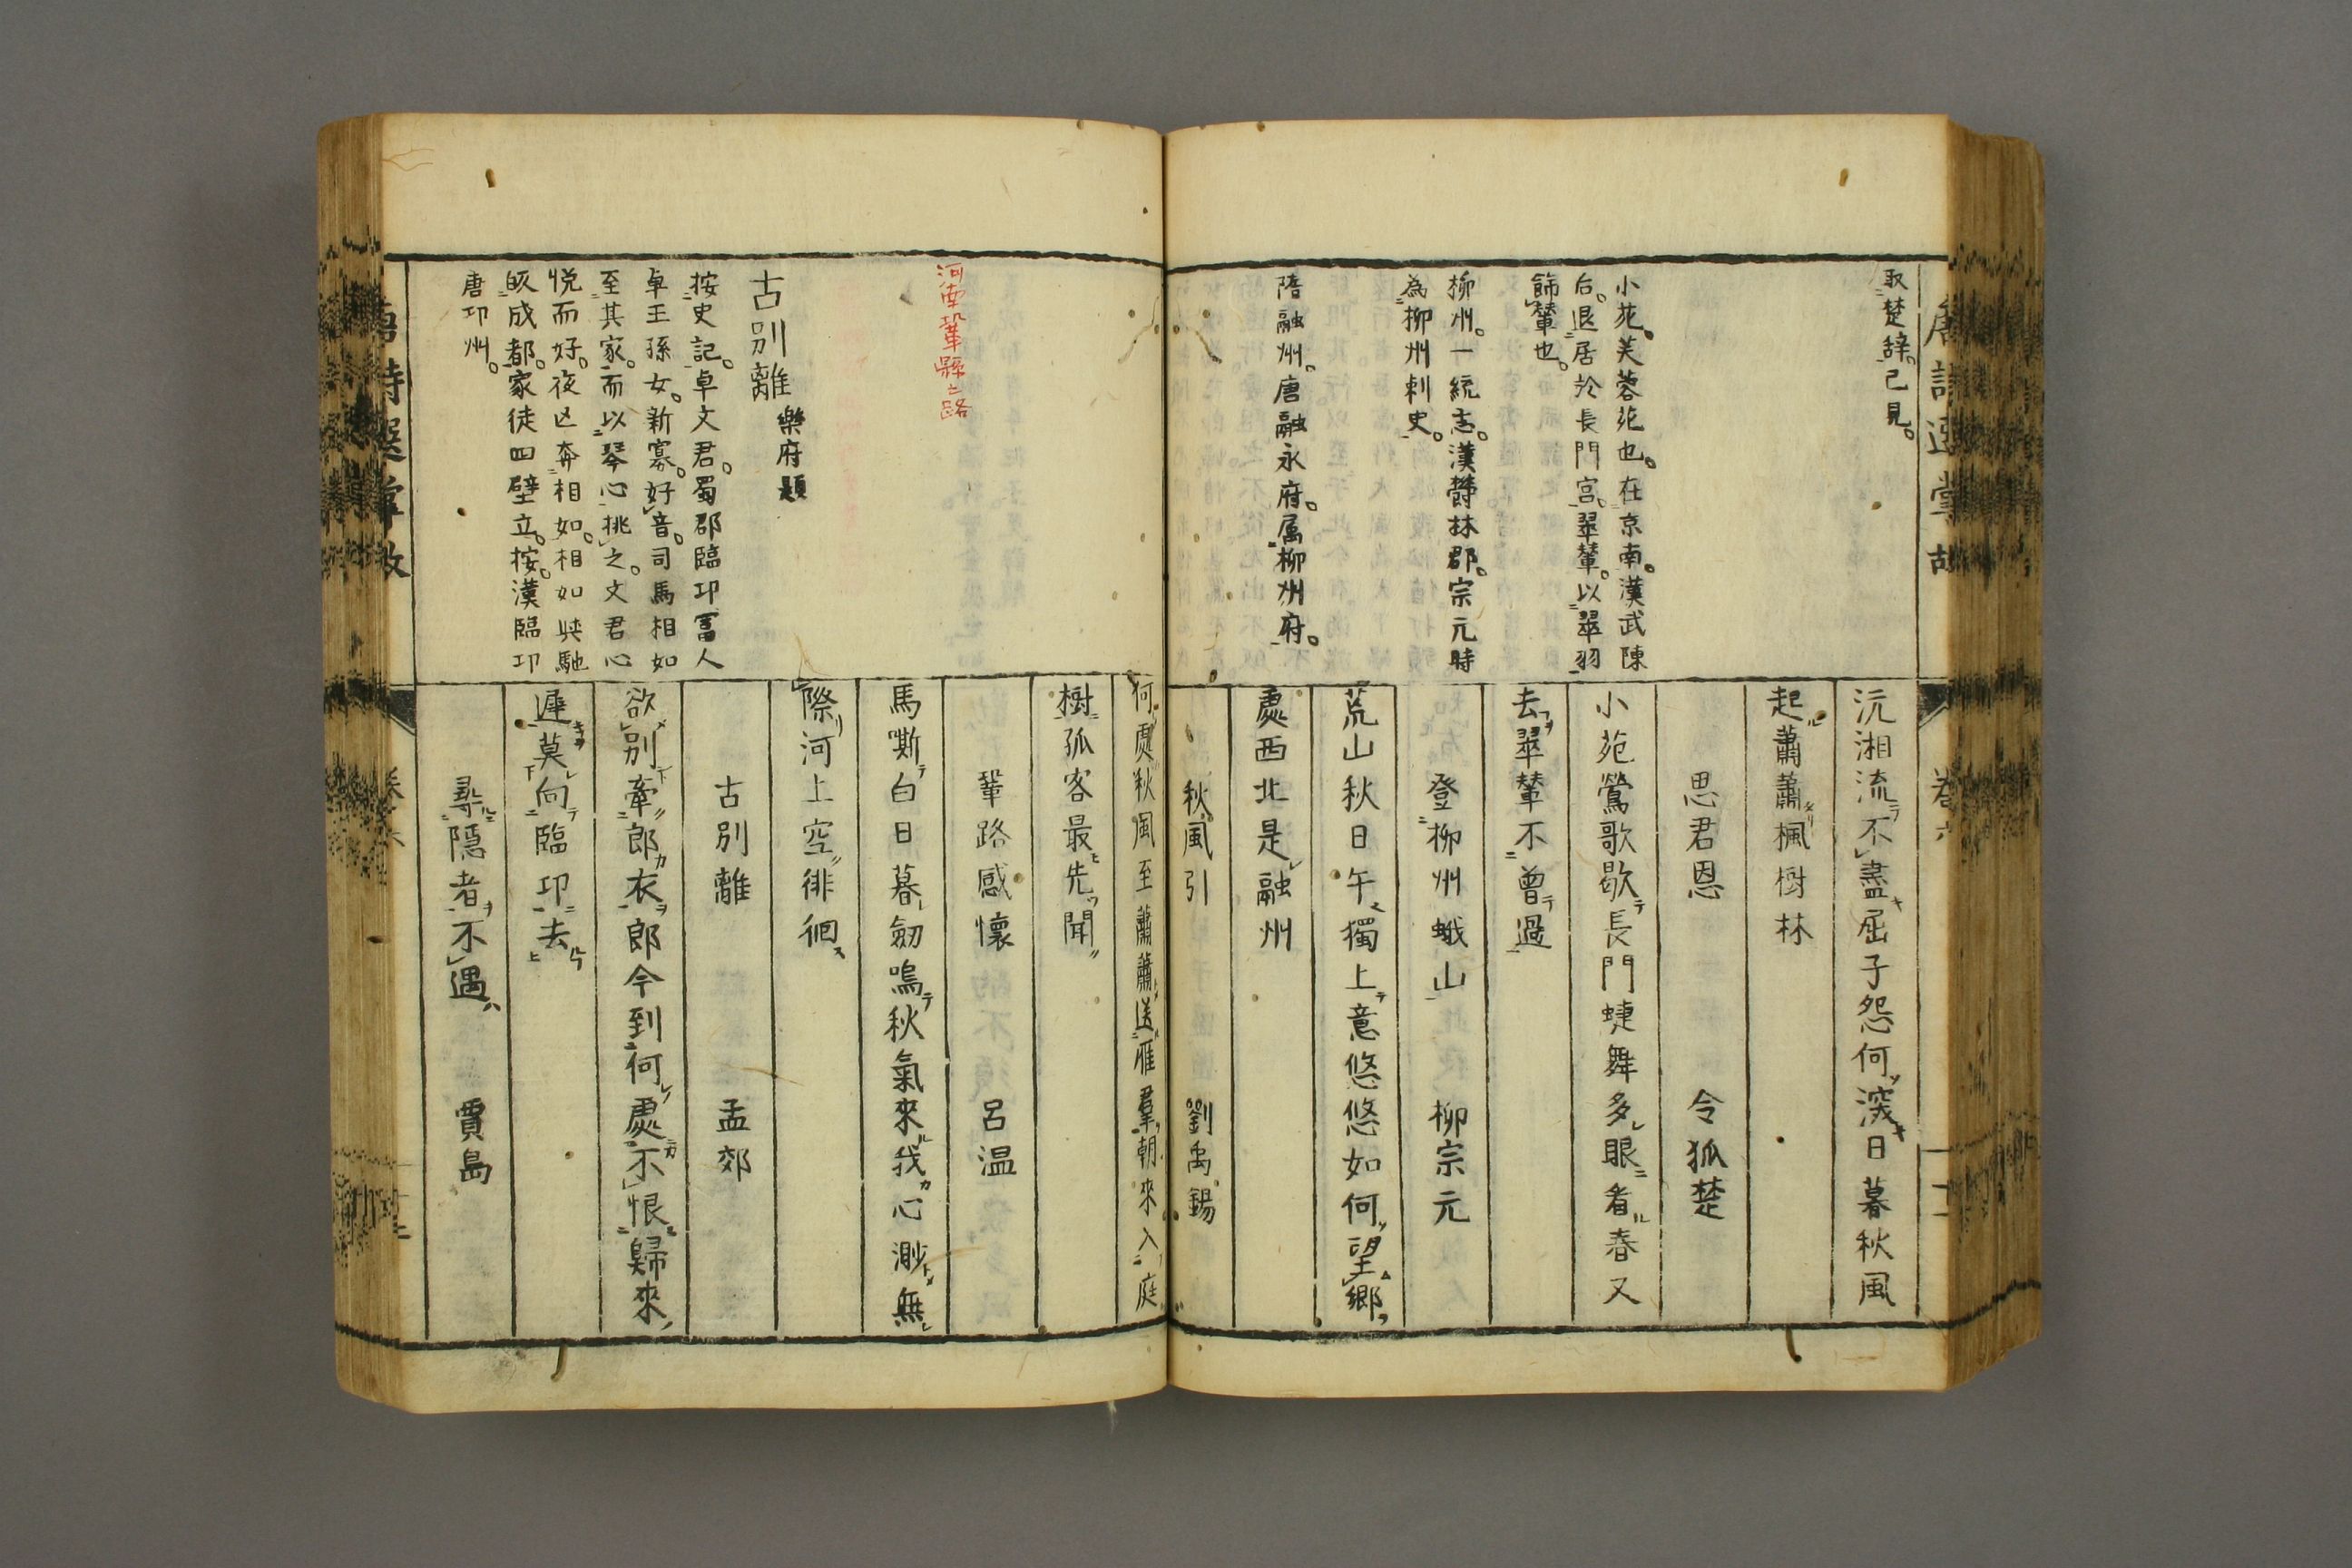 取楚辞。已見。
小苑。芙蓉苑也。在京南。漢武陳
后。退居於長門宮。翠輦。以翠羽
飾輦也。
柳州。一統志。漢欝林郡。宗元時
為柳州刺史。
隋融州。唐融永府。属柳州府。
沅湘流不盡屈子怨何深日暮秋風
起蕭蕭楓樹林
思君恩 令狐楚
小苑鶯歌歇長門蜨舞多眼看春又
去翠輦不曾過
登柳州蛾山 柳宗元
荒山秋日午獨上意悠悠如何望鄉
處西北是融州
秋風引 劉禹錫
河南鞏縣之路
古別離 樂府題
按史記。卓文君。蜀郡臨卭冨人
卓王孫女。新寡。好音。司馬相如
至其家。而以琴心挑之。文君心
悦而好。夜亡奔相如。相如与馳
皈成都。家徒四壁立。按。漢臨卭
唐卭州。
何處秋風至蕭蕭送雁羣朝來入庭
樹孤客最先聞
鞏路感懷 呂温
馬嘶白日暮劒鳴秋氣來我心渺無
際河上空徘徊
古別離 孟郊
欲別牽郎衣郎今到何處不恨歸來
遲莫向臨卭去
尋隱者不遇 賈島